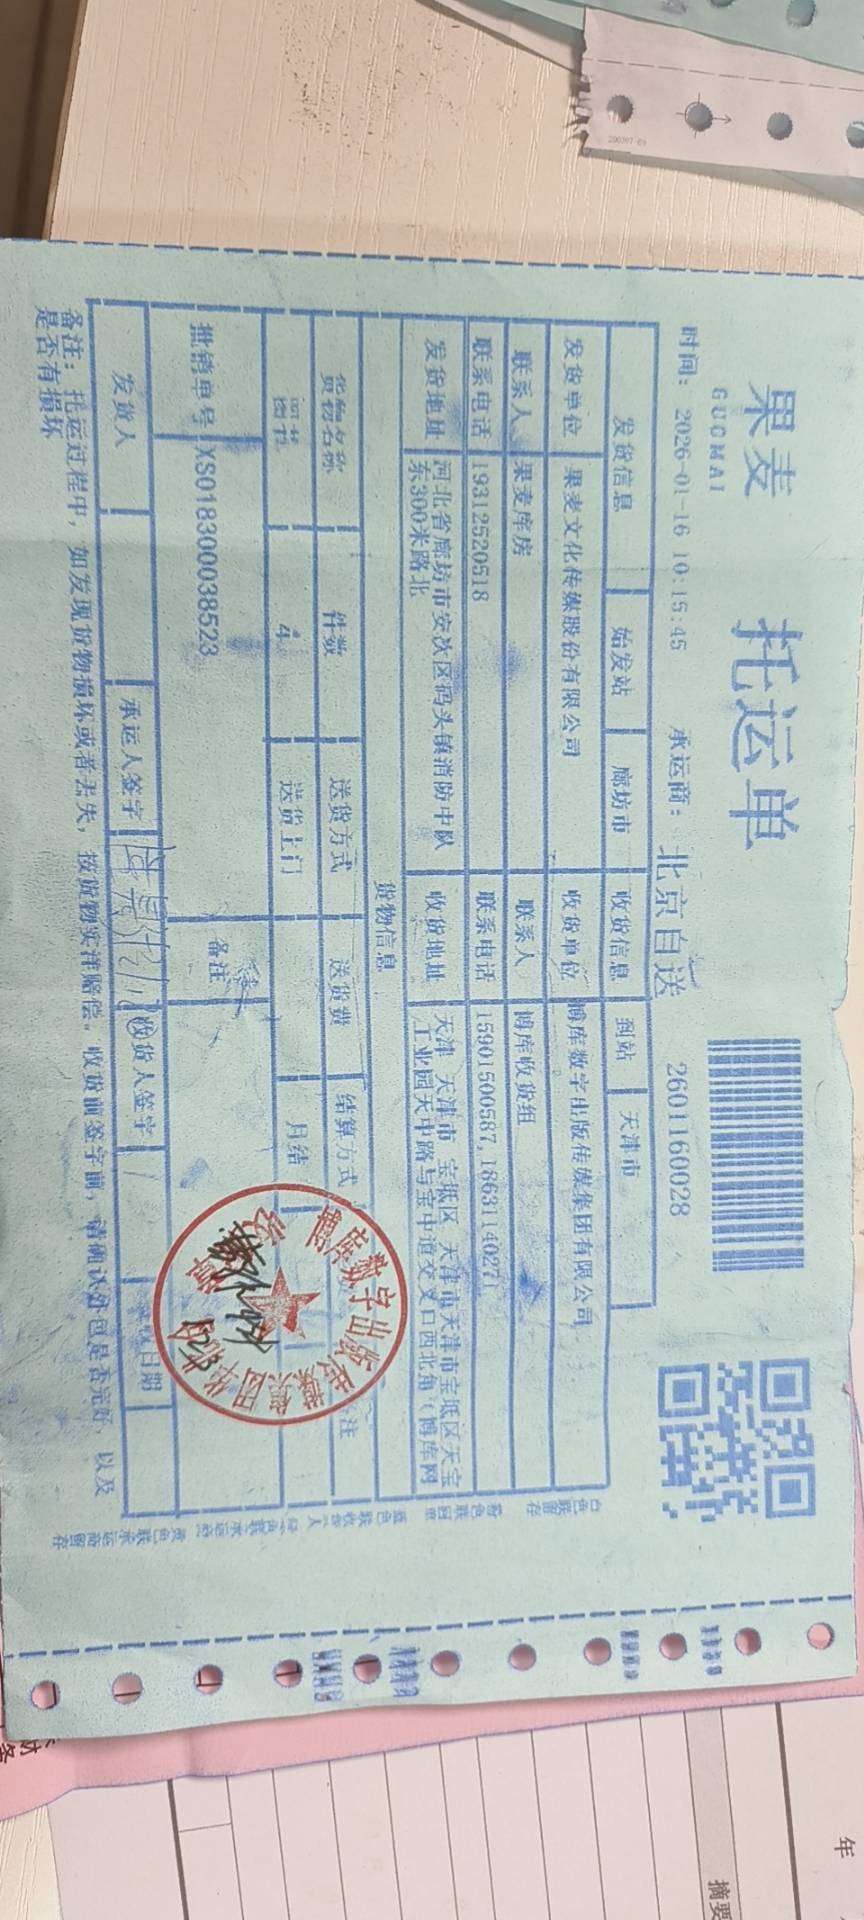 果麦
GUOMAI
托运单
时间: 2026-01-16 10:15:45 承运商: 北京自送 2601160028
发货信息 始发站 廊坊市 收货信息 到站 天津市
发货单位 果麦文化传媒股份有限公司 收货单位 博库数字出版传媒集团有限公司
联系人 果麦库房 联系人 博库收货组
联系电话 19312520518 联系电话 15901500587,18631140271
发货地址 河北省廊坊市安次区码头镇消防中队东300米路北 收货地址 天津 天津市 宝坻区 天津市天津市宝坻区天宝工业园天中路与宝中道交叉口西北角(博库网
货物信息
货物名称 件数 送货方式 送货费 结算方式 备注
图书 4 送货上门 月结
批销单号 XS018300038523 备注
发货人 承运人签字 收货人签字 日期
备注: 托运过程中, 如发现货物损坏或者丢失, 按货物实洋赔偿。收货前签字前, 请确认外包是否完好, 以及
是否有损坏
博库数字出版传媒集团
年
摘要